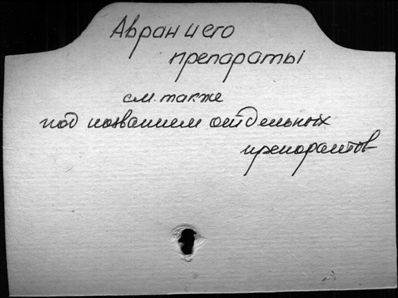 Авран и его
препараты
см. также
под названием отдельных
препаратов